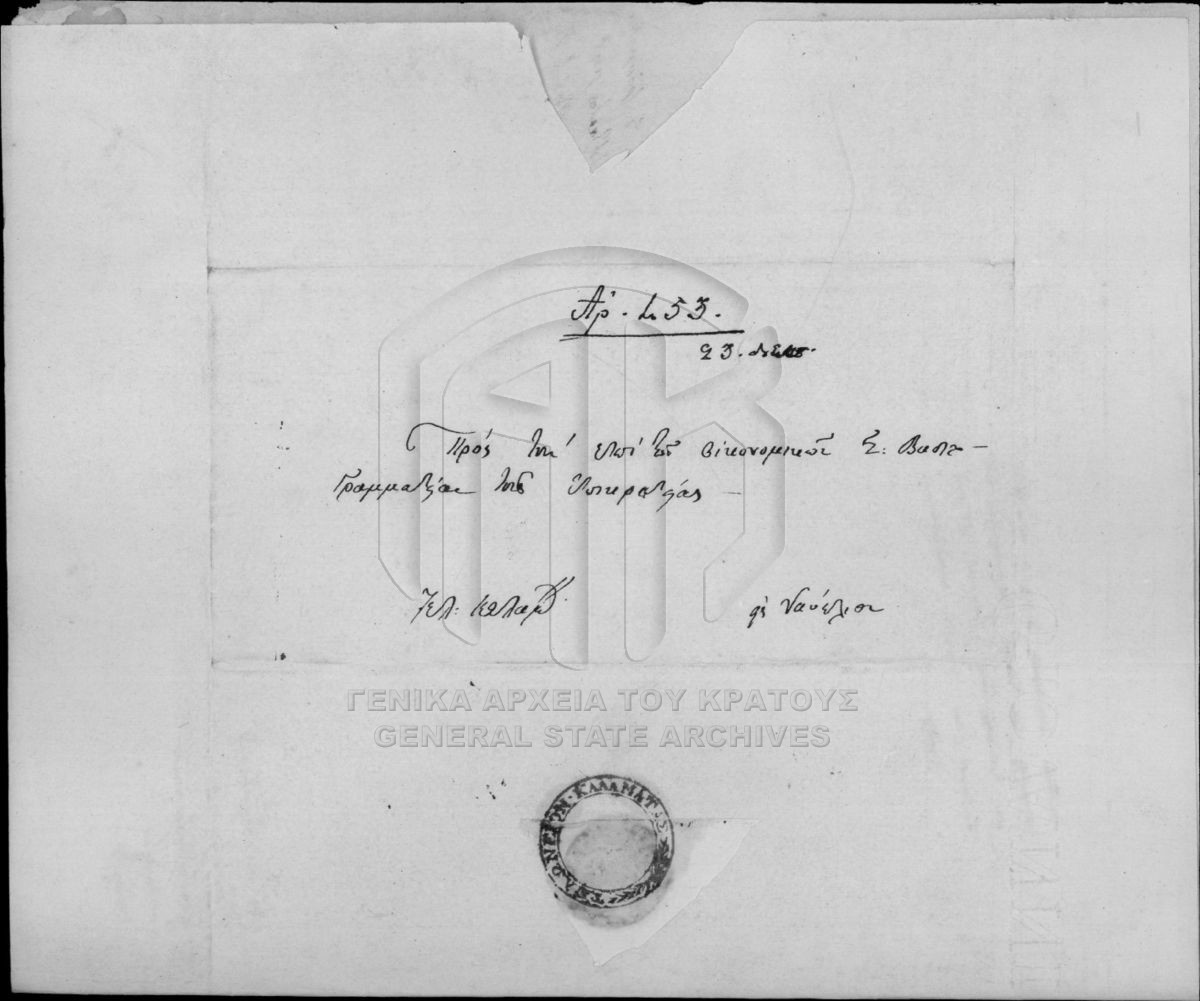 Αρ. 253.
23.
Πρὸς τὴν ἐπὶ τῶν Οἰκονομικῶν Σ: Βασιλ-
Γραμματείαν τῆς Ἐπικρατείας —
Τελ: Καλαμ
εἰς Ναύπλιον
ΓΕΝΙΚΑ ΑΡΧΕΙΑ ΤΟΥ ΚΡΑΤΟΥΣ
GENERAL STATE ARCHIVES
ΤΕΛΩΝΕΙΟΝ·ΚΑΛΑΜΑΤΑΣ